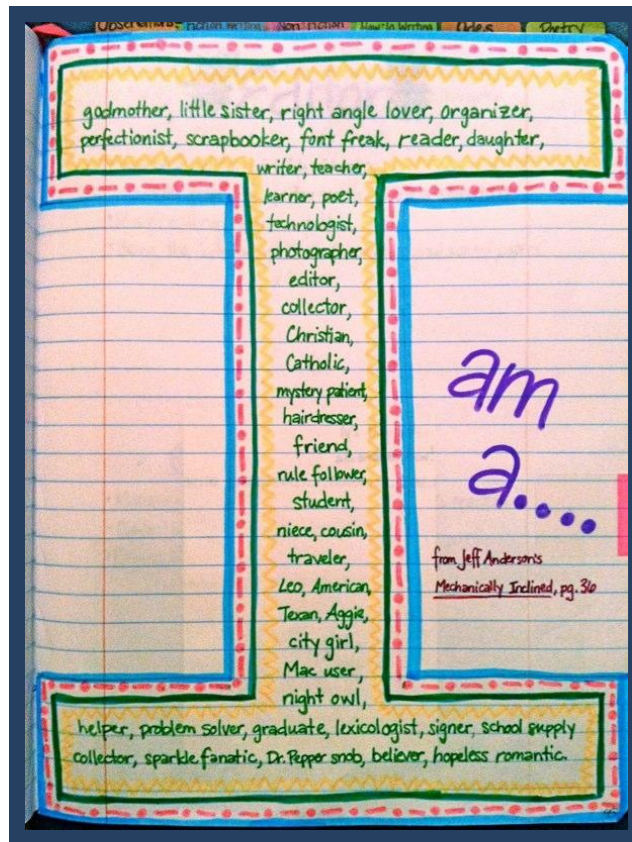 Fiction Writing Non Fiction How-to Writing Odes Poetry
godmother, little sister, right angle lover, organizer,
perfectionist, scrapbooker, font freak, reader, daughter,
writer, teacher,
learner, poet,
technologist,
photographer,
editor,
collector,
Christian,
Catholic,
mystery patient,
hairdresser,
friend,
rule follower,
student,
niece, cousin,
traveler,
Leo, American,
Texan, Aggie,
city girl,
Mac user,
night owl,
helper, problem solver, graduate, lexicologist, signer, school supply
collector, sparkle fanatic, Dr. Pepper snob, believer, hopeless romantic.
am
a....
from Jeff Anderson's
Mechanically Inclined, pg. 36